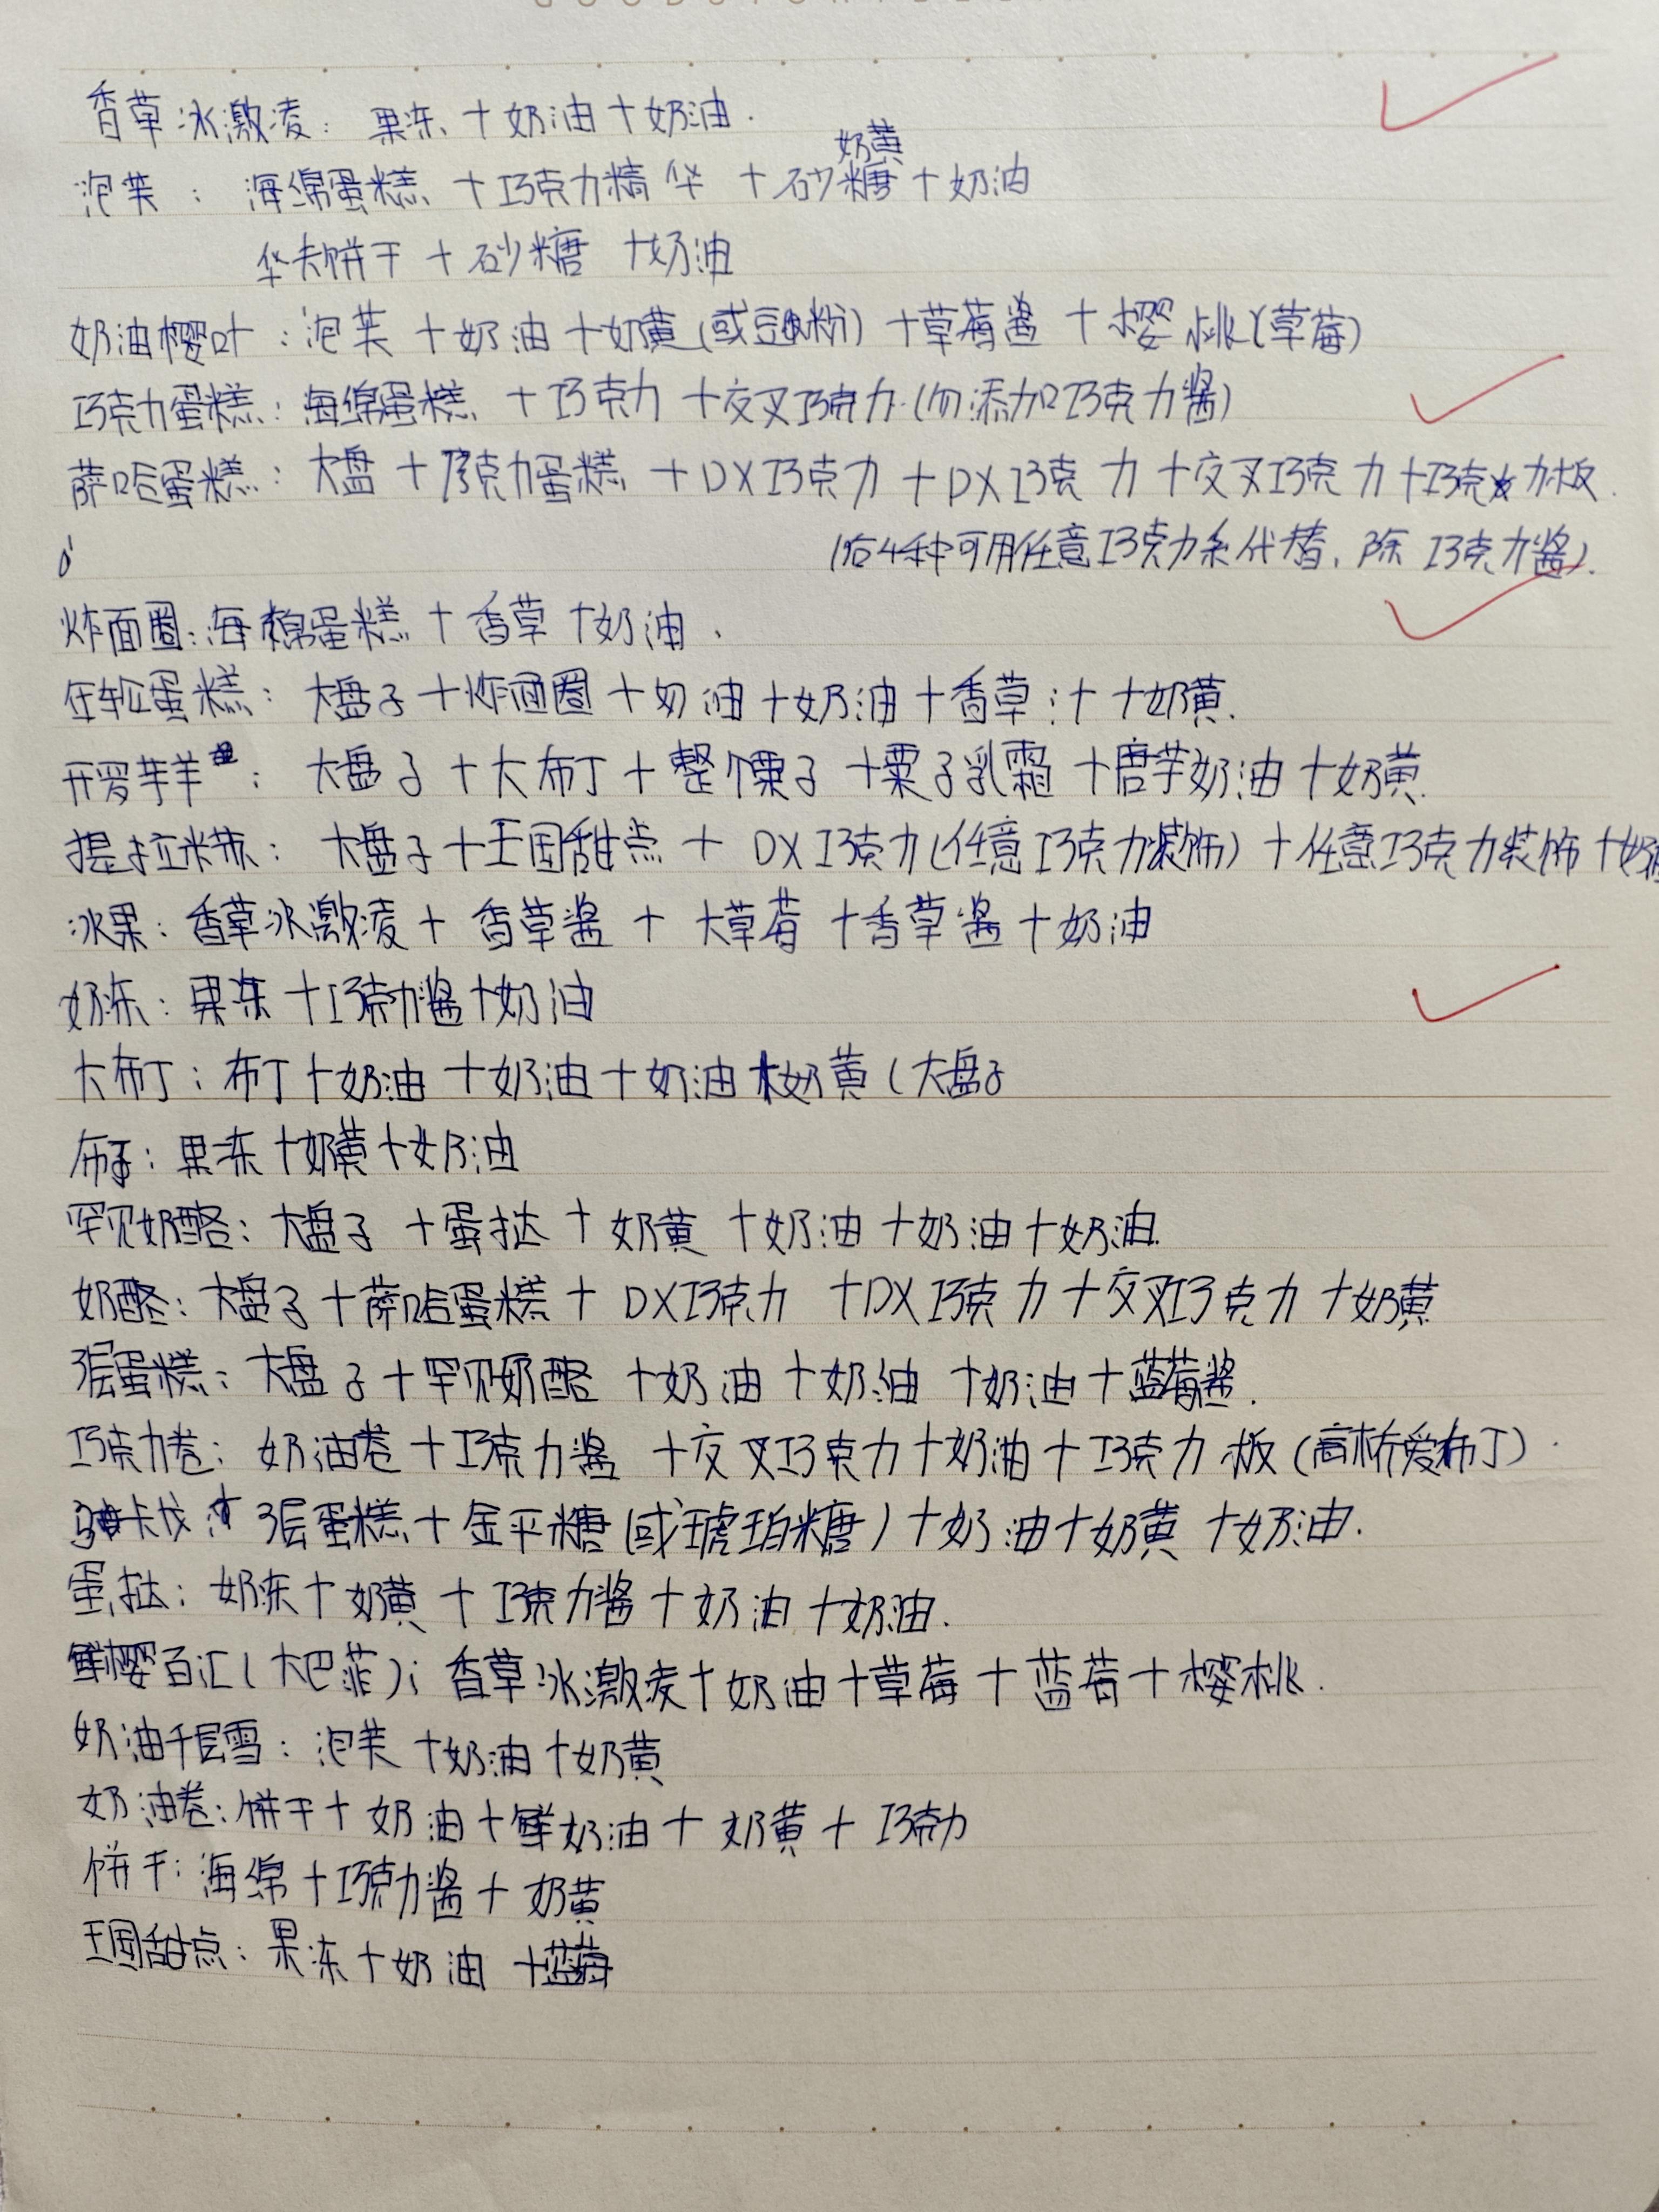 香草冰激凌：果冻+奶油+奶油.
奶黄
泡芙：海绵蛋糕+巧克力精华+砂糖+奶油
华夫饼干+砂糖+奶油
奶油樱叶：泡芙+奶油+奶黄(或豆粉)+草莓酱+樱桃(草莓)
巧克力蛋糕：海绵蛋糕+巧克力+夜叉巧克力(勿添加巧克力酱)
萨哈蛋糕：大盘+巧克力蛋糕+DX巧克力+DX巧克力+夜叉巧克力+巧克力板.
(后4种可用任意巧克力系代替,除巧克力酱).
炸面圈：海绵蛋糕+香草+奶油.
年轮蛋糕：大盘子+炸面圈+奶油+奶油+香草汁+奶黄.
开罗芋羊盅：大盘子+大布丁+整个栗子+栗子乳霜+唐芋奶油+奶黄.
提拉米苏：大盘子+王国甜点+DX巧克力(任意巧克力装饰)+任意巧克力装饰+奶
冰果：香草冰激凌+香草酱+大草莓+香草酱+奶油
奶冻：果冻+巧克力酱+奶油
大布丁：布丁+奶油+奶油+奶油+奶黄(大盘子
布丁：果冻+奶黄+奶油
罕见奶酪：大盘子+蛋挞+奶黄+奶油+奶油+奶油.
奶酪：大盘子+萨哈蛋糕+DX巧克力+DX巧克力+夜叉巧克力+奶黄
3层蛋糕：大盘子+罕见奶酪+奶油+奶油+奶油+蓝莓酱.
巧克力卷：奶油卷+巧克力酱+夜叉巧克力+奶油+巧克力板(高桥爱布丁).
卡戊：3层蛋糕+金平糖(或琥珀糖)+奶油+奶黄+奶油.
蛋挞：奶冻+奶黄+巧克力酱+奶油+奶油.
鲜樱百汇(大巴菲)：香草冰激凌+奶油+草莓+蓝莓+樱桃.
奶油千层雪：泡芙+奶油+奶黄
奶油卷：饼干+奶油+鲜奶油+奶黄+巧克力
饼干：海绵+巧克力酱+奶黄
王国甜点：果冻+奶油+蓝莓